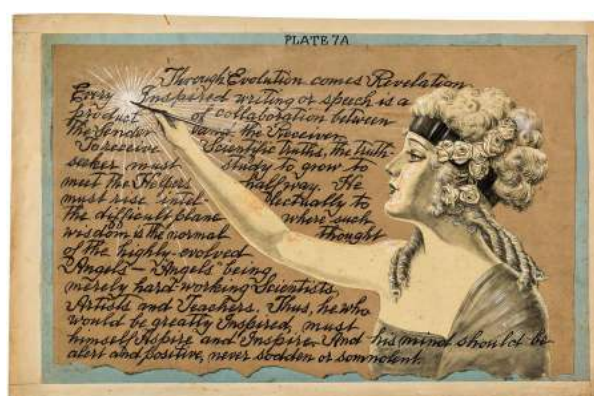 PLATE 7A
Through Evolution comes Revelation
Every Inspired writing or speech is a
product of collaboration between
the Sender and the Receiver
To receive Scientific truths, the truth-
seeker must study to grow to
meet the Helpers half way. He
must rise intel- lectually to
the difficult plane where such
wisdom is the normal thought
of the highly-evolved
"Angels" – "Angels" being
merely hard-working Scientists
Artists and Teachers. Thus, he who
would be greatly Inspired, must
himself Aspire and Inspire. And his mind should be
alert and positive, never sodden or somnolent.